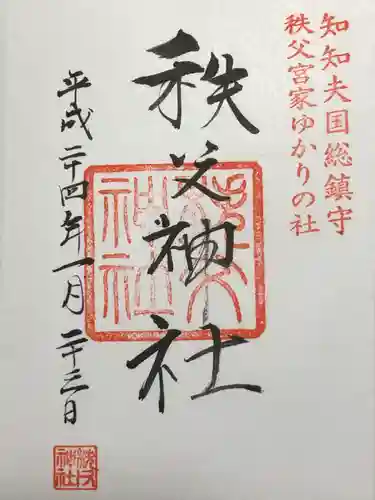 知知夫国総鎮守
秩父宮家ゆかりの社
秩父神社
平成二十四年一月二十三日
秩父神社